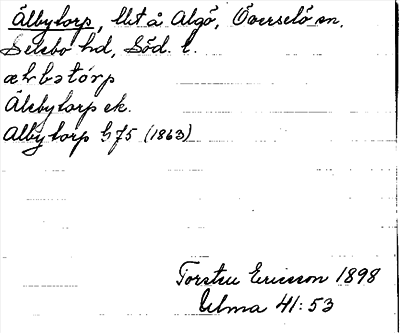 Älbytorp, lht å Algö, Överselö sn,
Selebo hd, Söd. l.
ælbatórp
Älebytorp ek.
Älbytorp G 75 (1863)
Torsten Ericsson 1898
Ulma 41:53